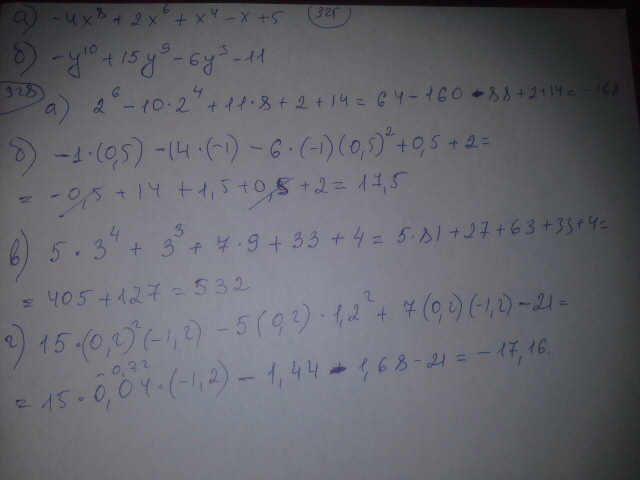 а) -4x⁸ + 2x⁶ + x⁴ - x + 5 (325)
б) -y¹⁰ + 15y⁹ - 6y³ - 11
328 а) 2⁶ - 10·2⁴ + 11·8 + 2 + 14 = 64 - 160 - 88 + 2 + 14 = -168
б) -1·(0,5) - 14·(-1) - 6·(-1)(0,5)² + 0,5 + 2 =
= -0,5 + 14 + 1,5 + 0,5 + 2 = 17,5
в) 5·3⁴ + 3³ + 7·9 + 33 + 4 = 5·81 + 27 + 63 + 33 + 4 =
= 405 + 127 = 532
г) 15·(0,2)²(-1,2) - 5(0,2)·1,2² + 7(0,2)(-1,2) - 21 =
-0,72
= 15·0,04·(-1,2) - 1,44 - 1,68 - 21 = -17,16.